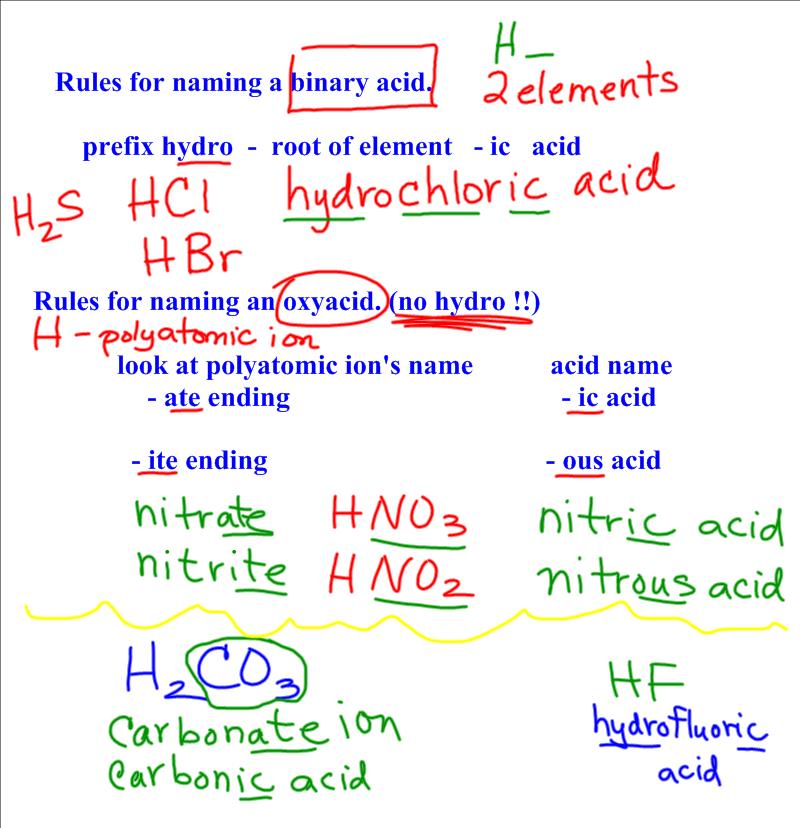 H _
Rules for naming a binary acid.
2 elements
prefix hydro - root of element - ic acid
H₂S HCl hydrochloric acid
HBr
Rules for naming an oxyacid. (no hydro !!)
H - polyatomic ion
look at polyatomic ion's name acid name
- ate ending - ic acid
- ite ending - ous acid
nitrate HNO₃ nitric acid
nitrite HNO₂ nitrous acid
H₂CO₃ HF
carbonate ion hydrofluoric
carbonic acid acid